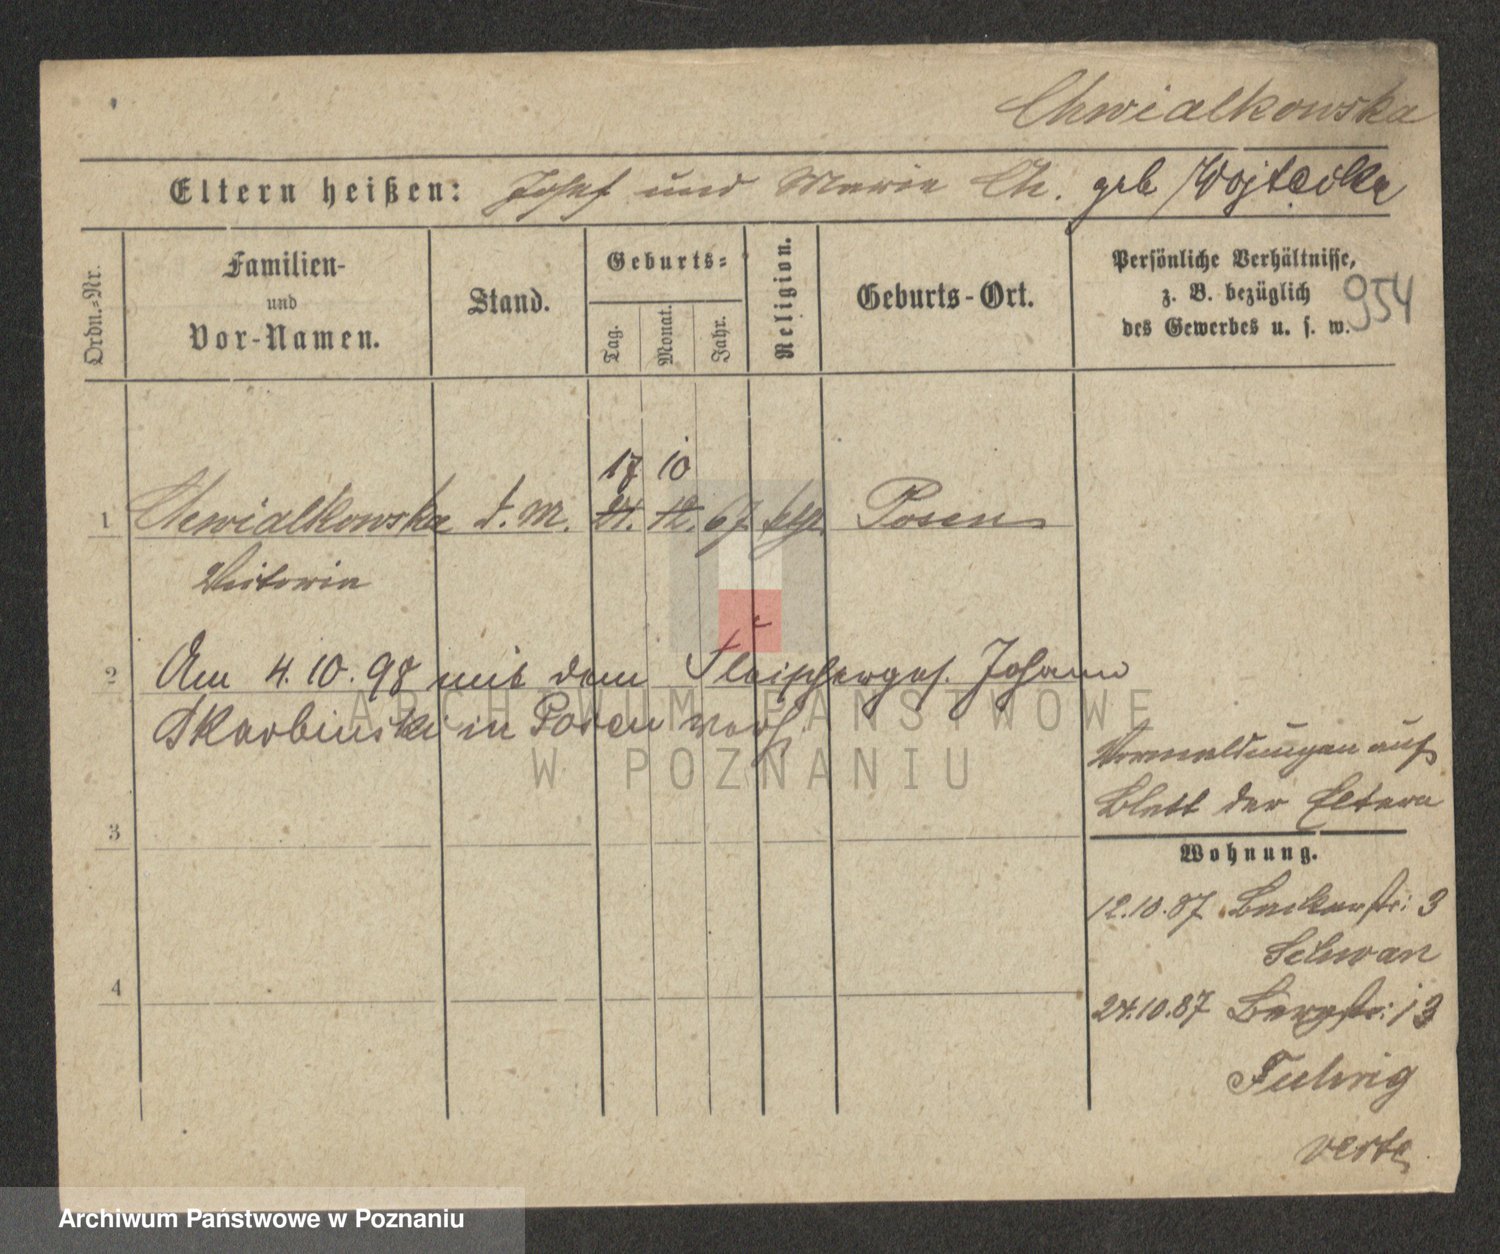 Chwialkowska
Eltern heißen: Josef und Marie Ch. geb Wojtecka
Ordn.-Nr.
Familien-
und
Vor-Namen.
Stand.
Geburts-
Tag.
Monat.
Jahr.
Religion.
Geburts-Ort.
Persönliche Verhältnisse,
z. B. bezüglich
des Gewerbes u. s. w.
954
17 10
1 Chwialkowska d. M. 24. 12. 67 ktl. Posen
Victoria
2 Am 4. 10. 98 mit dem Fleischerges. Johann
Skarbinski in Posen verh
Vermeldungen aufs
Blatt der Eltern
3
Wohnung.
12.10.87 Backerstr: 3
Schwan
4
24.10.87 Bergstr: 13
verte
ARCHIWUM PAŃSTWOWE
W POZNANIU
Archiwum Państwowe w Poznaniu